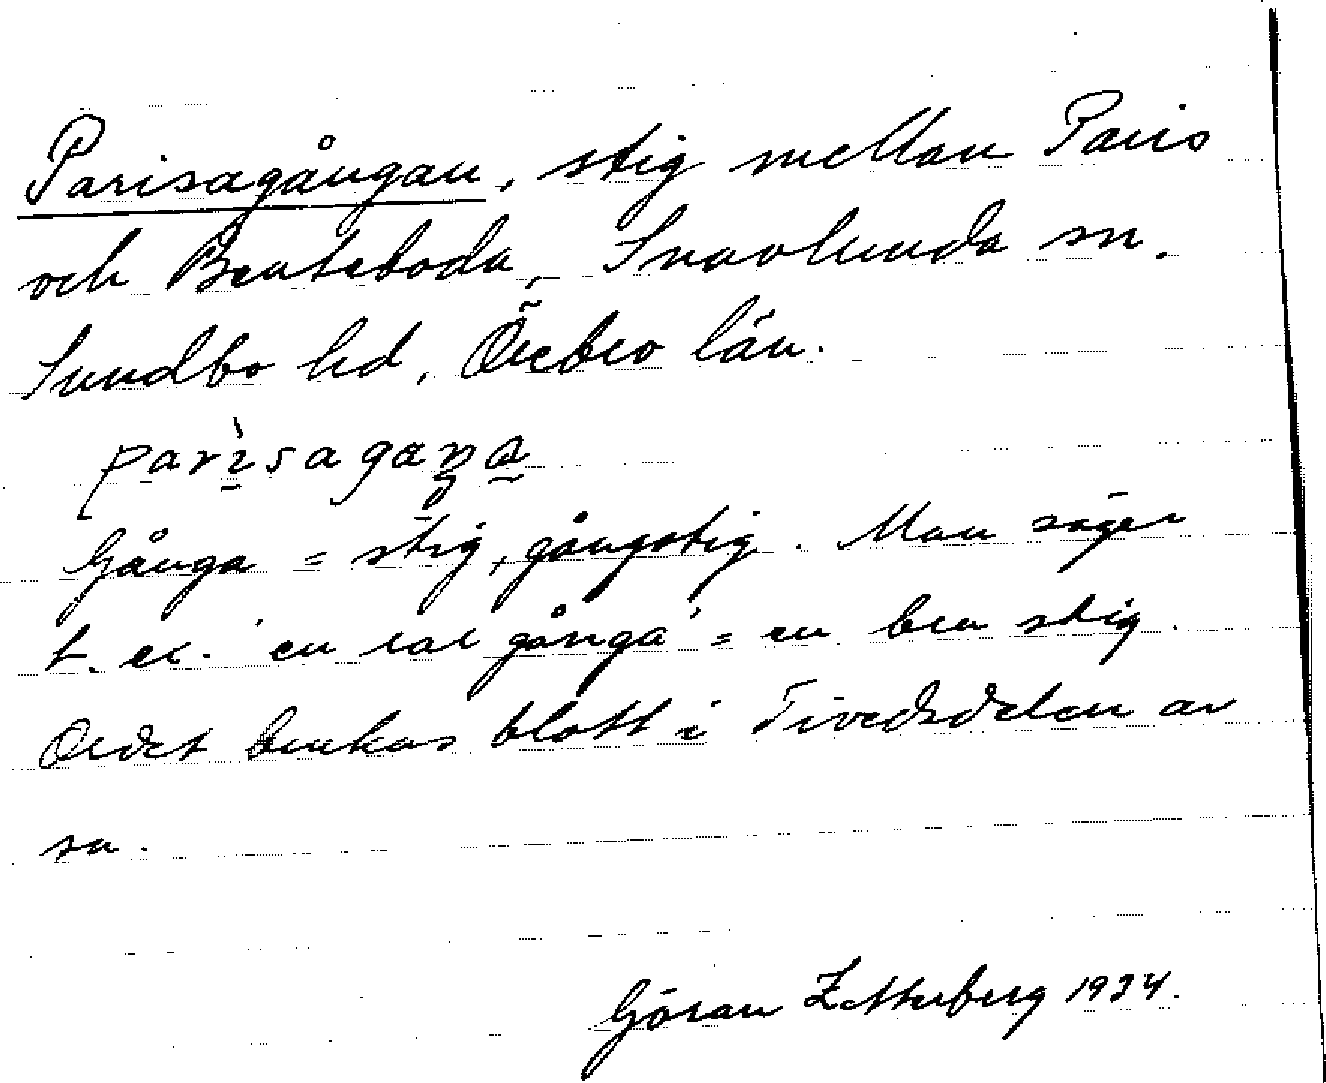 Parisagångan, stig mellan Paris
och Beateboda, Snavlunda sn.
Sundbo hd, Örebro län.
parìsagaŋa
Gånga = stig, gångstig. Man säger
t. ex. 'en rar gånga' = en bra stig.
Ordet brukas blott i Tivedsdelen av
sn.
Göran Zetterberg 1934.